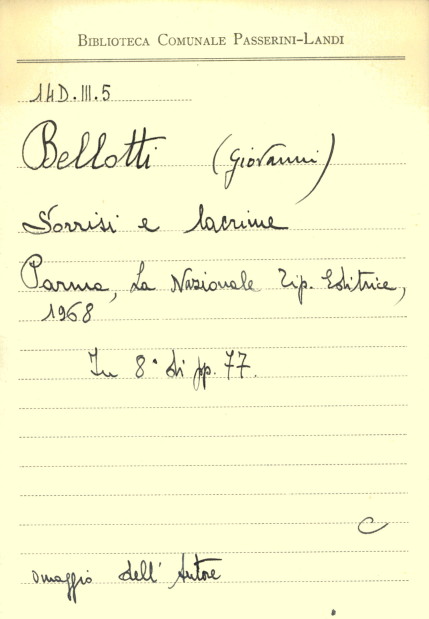 BIBLIOTECA COMUNALE PASSERINI-LANDI
14D.III.5
Bellotti (Giovanni)
Sorrisi e lacrime
Parma, La Nazionale Tip. Editrice,
1968
In 8° di pp. 77.
C
omaggio dell' Autore